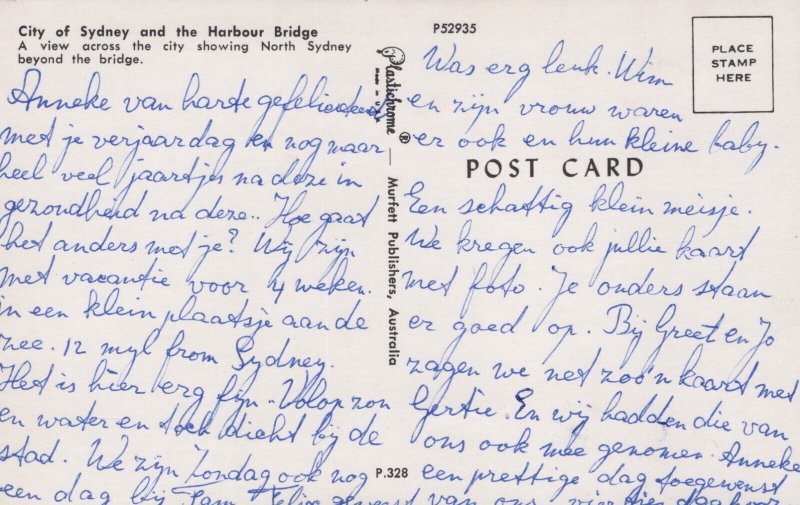 City of Sydney and the Harbour Bridge
A view across the city showing North Sydney
beyond the bridge.
Anneke van harte gefeliciteerd
met je verjaardag en nog maar
heel veel jaartjes na deze in
gezondheid na deze.. Hoe gaat
het anders met je? Wij zijn
met vacantie voor 4 weken.
in een klein plaatsje aan de
zee. 12 myl from Sydney.
Het is hier erg fijn. Volop zon
en water en toch dicht bij de
stad. We zijn Zondag ook nog
een dag bij
Plastichrome ®
MADE IN U.S.A.
Murfett Publishers, Australia
P.328
P52935
PLACE
STAMP
HERE
Was erg leuk. Wim
en zijn vrouw waren
er ook en hun kleine baby.
POST CARD
Een schattig klein meisje.
We kregen ook jullie kaart
met foto. Je onders staan
er goed op. Bij Greet en Jo
zagen we net zoo'n kaart met
Gertie. En wij hadden die van
ons ook mee genomen. Anneke
een prettige dag toegewenst
van ons